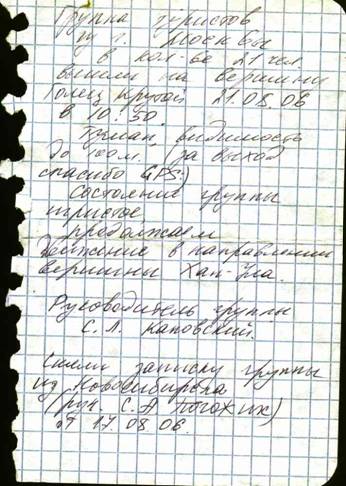 Группа туристов
из г. Москвы
в кол-ве 21 чел.
вышли на вершину
Голец Крутой 21.08.06
в 10:50.
Туман, видимость
до 100м. (за выход
спасибо GPS:)
Состояние группы
продолжаем
движение в направлении
вершины Хан-Ула.
Руководитель группы
С. Л. Каповский.
Сняли записку группы
из Новосибирска
(рук. С. А Погожих)
от 17 08 06.